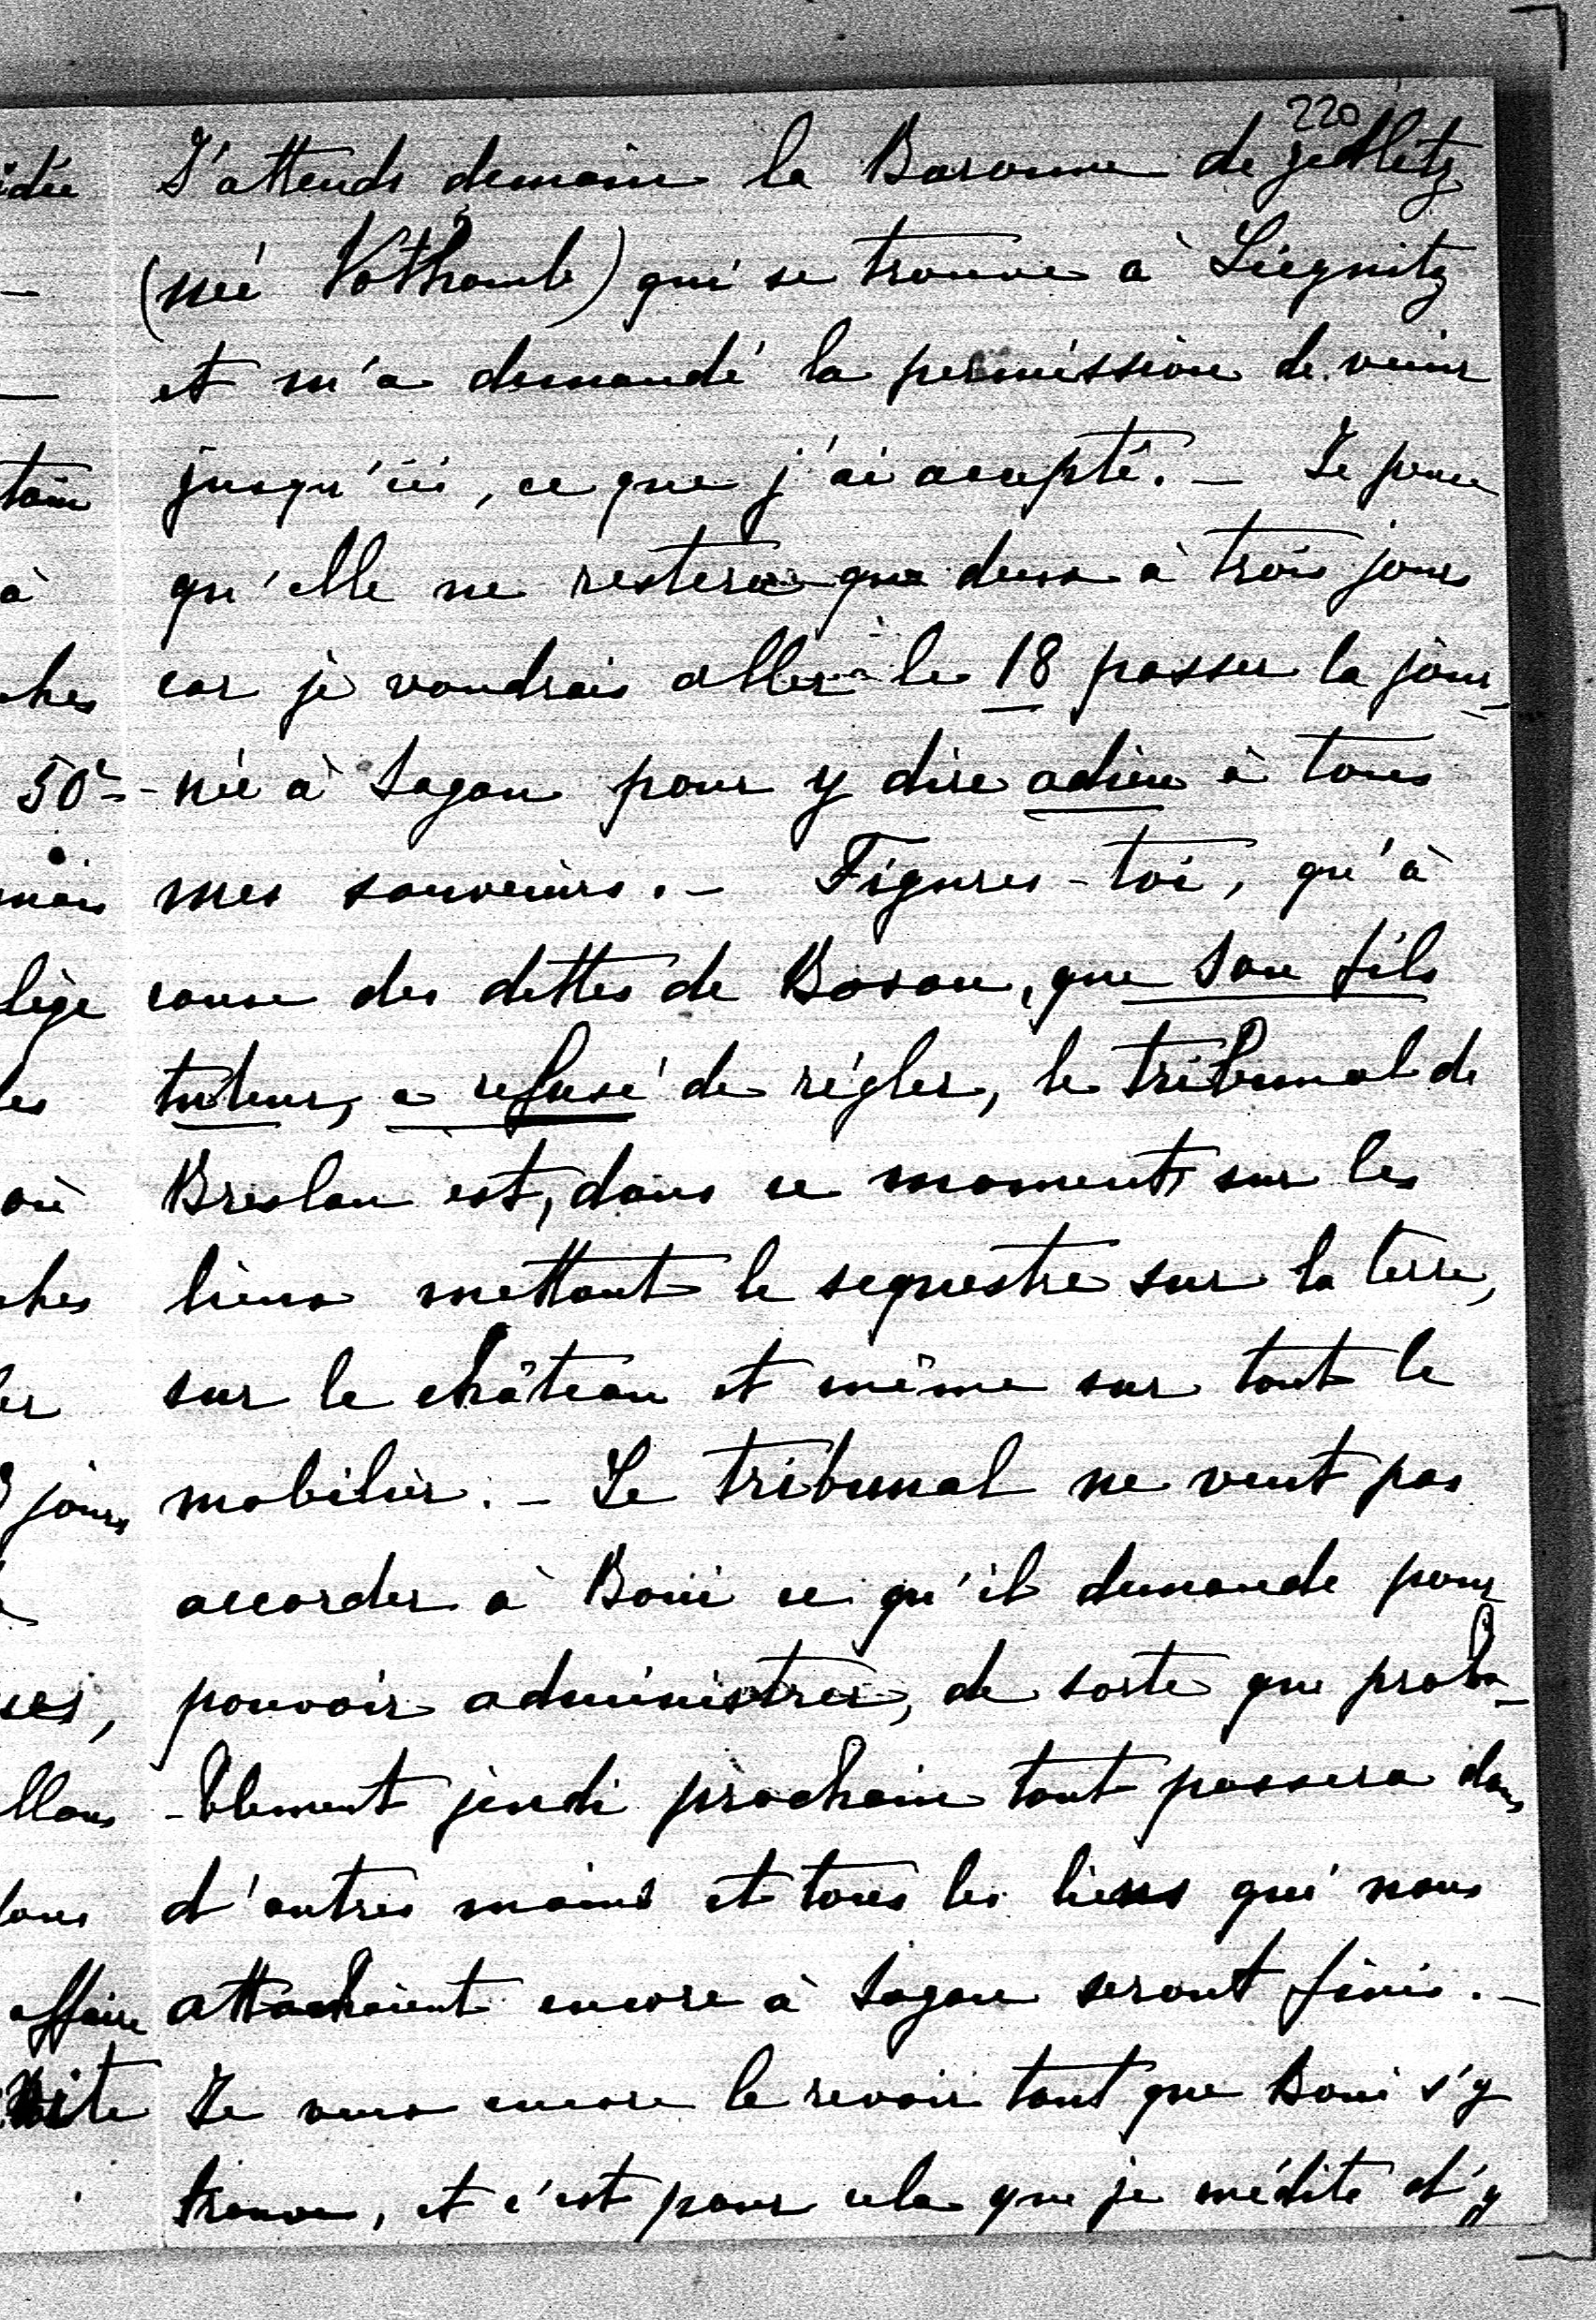 220
J'attends demain la Baronne de Zedlitz
(née Nothomb) qui se trouve à Liegnitz
et m'a demandé la permission de venir
jusqu'ici, ce que j'ai accepté. — Je pense
qu'elle ne restera que deux à trois jours
car je voudrais aller le 18 passer la jour-
-née à Sagan pour y dire adieu à tous
mes souvenirs. — Figures-toi, qu'à
cause des dettes de Boson, que son fils
tuteur, a refusé de régler, le tribunal de
Breslau est, dans ce moment sur les
lieux mettant le sequestre sur la terre,
sur le château et même sur tout le
mobilier. — Le tribunal ne veut pas
accorder à Boni ce qu'il demande pour
pouvoir administrer, de sorte que proba-
-blement jeudi prochain tout passera dans
d'autres mains et tous les liens qui nous
attachaient encore à Sagan seront finis. —
Je veux encore le revoir tant que Boni s'y
trouve, et c'est pour cela que je médite d'y
idée
à
50
lège
où
jours
affaire